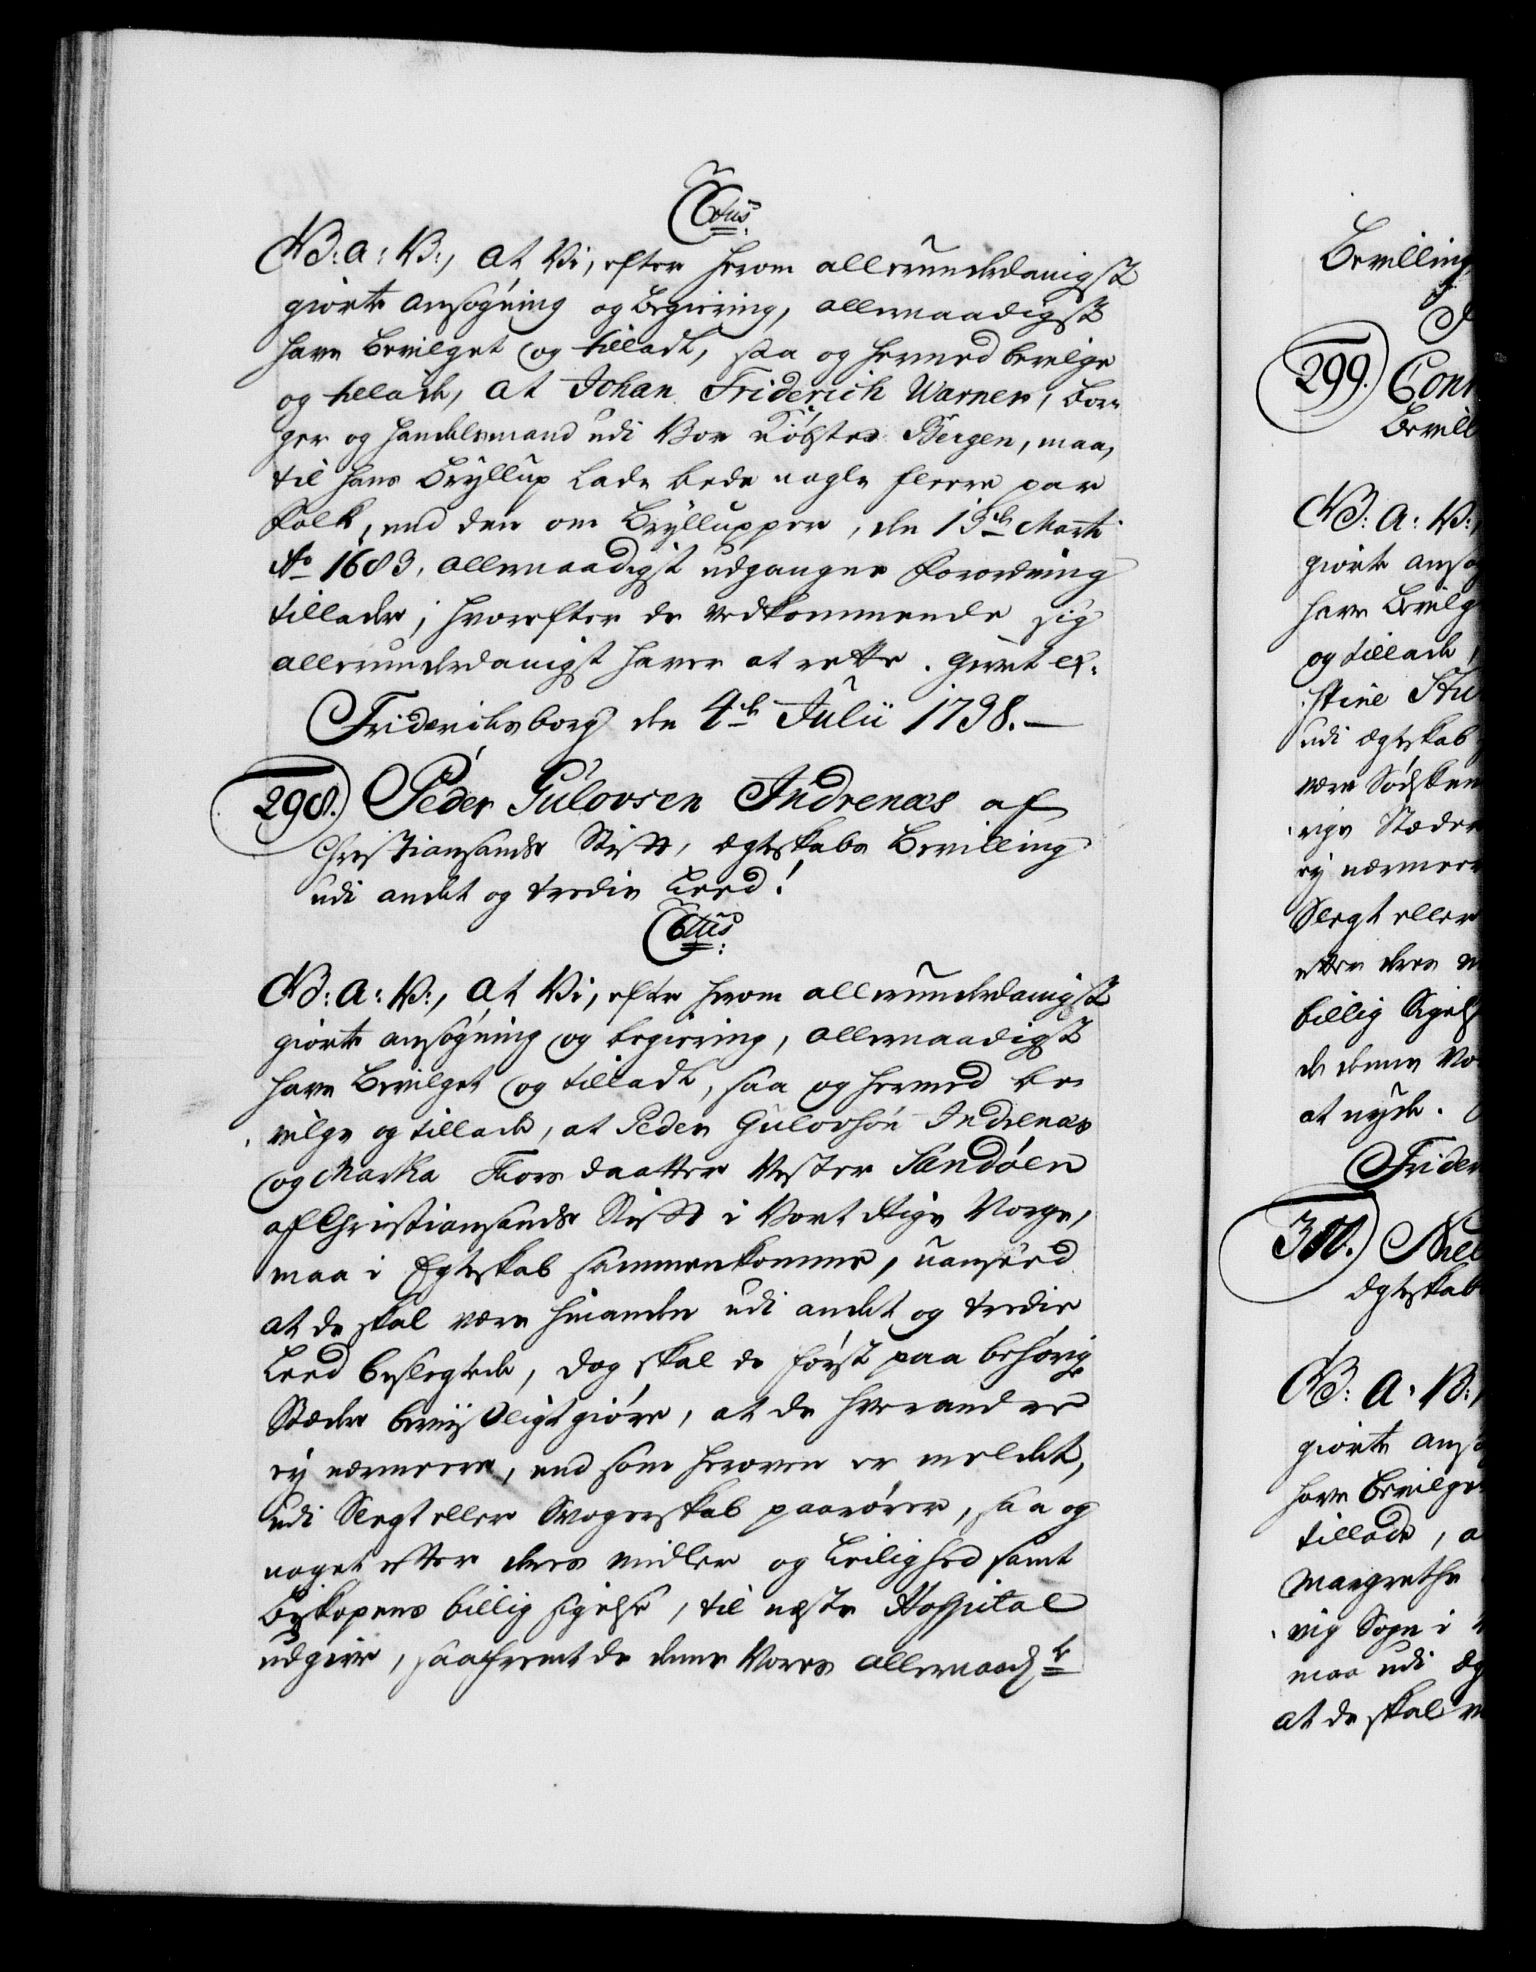 C6tus:
V: A: V:, At Vi, efter herom allerunderdanigst
giorte ansøgning og begiering, allernaadigst
have bevilget og tilladt, saa og hermed bevilge
og tillade, at Johan Friderich Warner, bor-
ger og handelsmand udi Vor Kiøbsted Bergen, maa,
til hans Bryllup lade bede nogle fleere par
folk, end den om Brylluppер, den 13de Marti
Ao 1683, allernaadigst udgangne forordning
tillader; hvorefter de vedkommende sig
allerunderdanigst haver at rette. Givet etc:
Friderichsborg den 4de Julii 1738.—
298. Peder Gulovsen Indrenæs af
Christiansands Stift, ægteskabs Bevilling
udi andet og tredie Leed!
C6tus:
V: A: V:, At Vi, efter herom allerunderdanigst
giorte ansøgning og begiering, allernaadigst
have bevilget og tilladt, saa og hermed be-
vilge og tillade, at Peder Gulovsøn Indrenæs
og Martha Tiors daatter Vester Sandøen
af Christiansands Stift i Vort Rige Norge,
maa i Egteskab sammenkomme, uanseed
at de skal være hinanden udi andet og tredie
Leed beslegtede, dog skal de først paa behørige
Stæder beviisligtgiøre, at de hverandre
ey nærmere, end som heroven er meldet,
udi Slegt eller Svogerskab paarører, saa og
noget efter deres midler og Leilighed samt
Biskopens billig sigelse, til næste Hospital
udgive, saafremt de denne Vores allernaadste
Bevilling
299. Con
Bevill
V: A: V:,
giorte ansø
have bevilg
og tillade,
stine
udi ægteskab
være Sødsken
rige Stæder
ey nærmere
Slegt eller
efter deres m
billig Sigels
de denne Vo
at nyde.
Frider
300. Niel
ægteskab
V: A: V:,
giorte ansø
have bevilge
tillade, a
Margrethe
vig Sogn i
maa udi æg
at de skal v